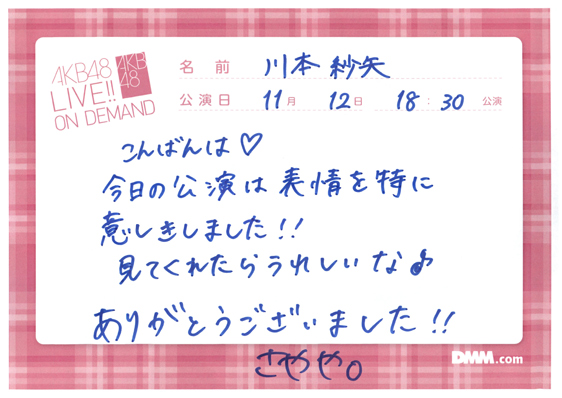 AKB48
LIVE!!
ON DEMAND
AKB
48
名前 川本 紗矢
公演日 11月 12日 18:30 公演
こんばんは♡
今日の公演は表情を特に
意しきしました!!
見てくれたらうれしいな♪
ありがとうございました!!
DMM.com
さやや。